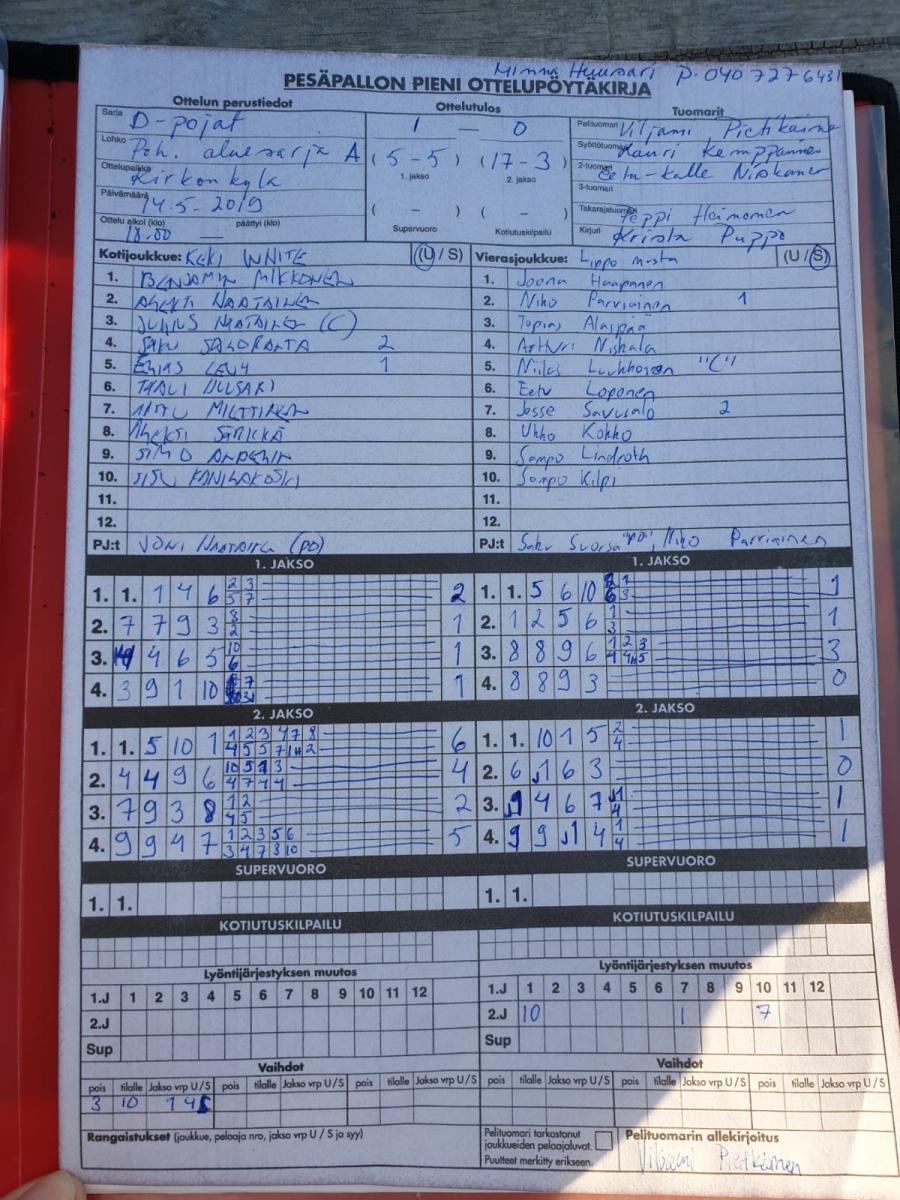 Minna Huusari p. 040 7276431
PESÄPALLON PIENI OTTELUPÖYTÄKIRJA
Ottelun perustiedot Ottelutulos Tuomarit
Sarja D-pojat
Lohko Poh. aluesarja A
Ottelupaikka Kirkonkylä
Päivämäärä 14.5-2019
Ottelu alkoi (klo) päättyi (klo)
18.00
1 — 0
(5-5) (17-3)
1. jakso 2. jakso
( - ) ( - )
Supervuoro Kotiutuskilpailu
Pelituomari Viljami Pietikäinen
Syöttötuomari Lauri Kemppainen
2-tuomari Eetu-Kalle Niskanen
3-tuomari
Takarajatuomari Peppi Heinonen
Kirjuri Krista Puppo
Kotijoukkue: KeKi WHITE (U / S)
1. BENJAMIN MIKKONEN
2. AHEKTI NAATAINEN
3. JULIUS NAATAINEN (C)
4. SAKU 2
5. 1
6.
7. MIETTINEN
8. SÄRKKÄ
9. SIMO
10.
11.
12.
PJ:t JONI (PO)
Vierasjoukkue: Lippo musta (U / S)
1. Joona Haapanen
2. Niko Parviainen 1
3. Topias Alaspää
4. Artturi Niskala
5. Niilas Luukkonen "C"
6. Eetu Loponen
7. Jesse Savusalo 2
8. Ukko Kokko
9. Sampo Lindroth
10. Sampo Kilpi
11.
12.
PJ:t Saku Suorsa "PO", Niko Parviainen
1. JAKSO
1. 1. 1 4 6 2 3 5 7 2
2. 7 7 9 3 8 2 1
3. 4 6 5 10 6 1
4. 3 9 1 10 7 1
1. JAKSO
1. 1. 5 6 10 1 3 1
2. 1 2 5 6 1 3 1
3. 8 8 9 6 1 2 3 3
4. 8 8 9 3 0
2. JAKSO
1. 1. 5 10 1 1 2 3 4 7 8 6
2. 4 4 9 6 4 7 4 4 4
3. 7 9 3 8 1 2 4 5 2
4. 9 9 4 7 1 2 3 5 6 3 4 7 8 10 5
2. JAKSO
1. 1. 10 1 5 2 4 1
2. 6 1 6 3 0
3. 1 4 6 7 1 4 1
4. 9 9 1 4 1 4 1
SUPERVUORO
1. 1.
SUPERVUORO
1. 1.
KOTIUTUSKILPAILU
KOTIUTUSKILPAILU
Lyöntijärjestyksen muutos
1.J 1 2 3 4 5 6 7 8 9 10 11 12
2.J
Sup
Lyöntijärjestyksen muutos
1.J 1 2 3 4 5 6 7 8 9 10 11 12
2.J 10 1 7
Sup
Vaihdot
pois tilalle Jakso vrp U / S pois tilalle Jakso vrp U / S pois tilalle Jakso vrp U / S
3 10 1 4
Vaihdot
pois tilalle Jakso vrp U / S pois tilalle Jakso vrp U / S pois tilalle Jakso vrp U / S
Rangaistukset (joukkue, pelaaja nro, jakso vrp U / S ja syy)
Pelituomari tarkastanut
joukkueiden pelaajaluvat.
Puutteet merkitty erikseen.
Pelituomarin allekirjoitus
Viljami Pietikäinen